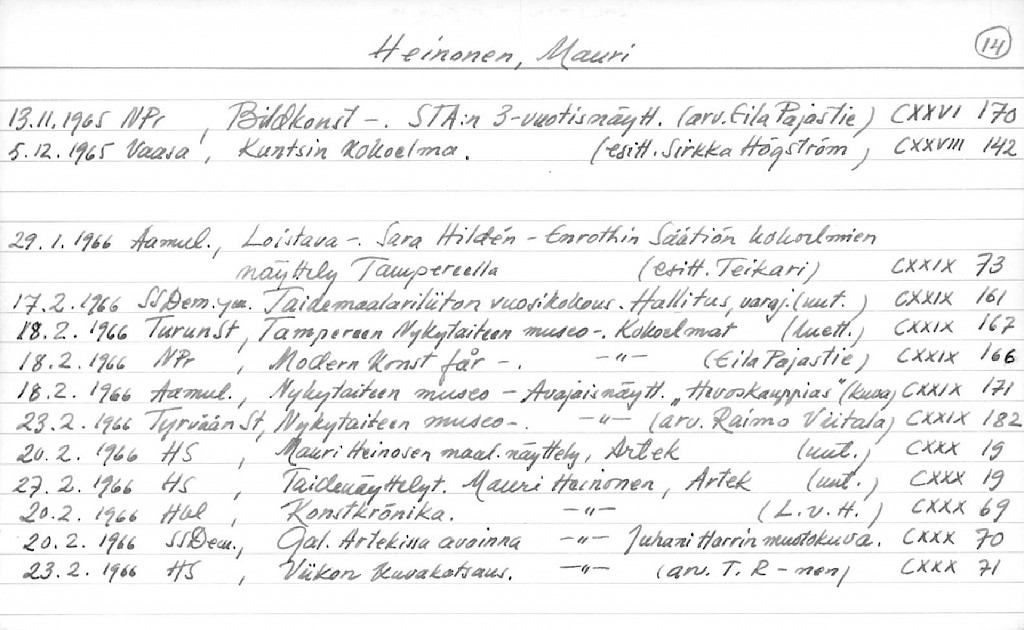 Heinonen, Mauri 14
13.11.1965 NPr , Bildkonst -. STA:n 3-vuotisnäytt. (arv. Eila Pajastie) CXXVI 170
5.12.1965 Vaasa , Kuntsin kokoelma. (esitt. Sirkka Högström) CXXVIII 142
29.1.1966 Aamul., Loistava -. Sara Hildén - Enrothin Säätiön kokoelmien
näyttely Tampereella (esitt. Teikari) CXXIX 73
17.2.1966 SSDem. ym. Taidemaalariliiton vuosikokous. Hallitus, varaj. (uut.) CXXIX 161
18.2.1966 TurunSt, Tampereen Nykytaiteen museo -. Kokoelmat (luett.) CXXIX 167
18.2.1966 NPr , Modern konst får -. -"- (Eila Pajastie) CXXIX 166
18.2.1966 Aamul., Nykytaiteen museo - Avajaisnäytt. „Hevoskauppias" (kuva) CXXIX 171
23.2.1966 TyrväänSt, Nykytaiteen museo -. -"- (arv. Raimo Viitala) CXXIX 182
20.2.1966 HS , Mauri Heinosen maal.näyttely, Artek (uut.) CXXX 19
27.2.1966 HS , Taidenäyttelyt. Mauri Heinonen, Artek (uut.) CXXX 19
20.2.1966 Hbl , Konstkrönika. -"- (L.v.H.) CXXX 69
20.2.1966 SSDem., Gal. Artekissa avainna -"- Juhani Harrin muotokuva. CXXX 70
23.2.1966 HS , Viikon kuvakatsaus. -"- (arv. T. R-nen) CXXX 71